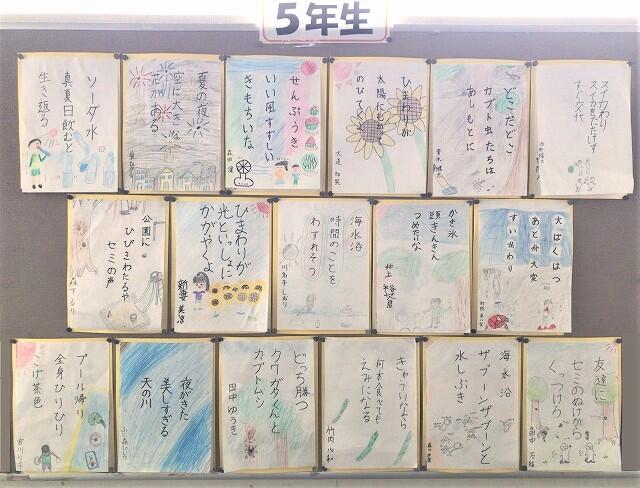 5年生
ソーダ水
真夏日飲むと
生き返る
夏の夜
空に大きな
花がある
せんぷうき
いい風すずしい
きもちいな
森田
ひまわりが
太陽にむかい
のびていく
どこだどこ
カブト虫たちは
あしもとに
青木
スイカわり
すぐ交代
公園に
ひびきわたるや
セミの声
ひまわりが
光といっしょに
かがやくよ
新妻
海水浴
時間のことを
わすれそう
かき氷
頭きんきん
つめたいな
井上
大ばくはつ
あと片大変
すいかわり
プール帰り
全身ひりひり
こげ茶色
夜がきた
美しすぎる
天の川
どっち勝つ
クワガタくんと
カブトムシ
田中 ゆうき
きゅうりなら
何本食べても
えみになる
竹内 心和
海水浴
ザブーンザブーンと
水しぶき
友達に
セミのぬけがら
くっつけろ
田中